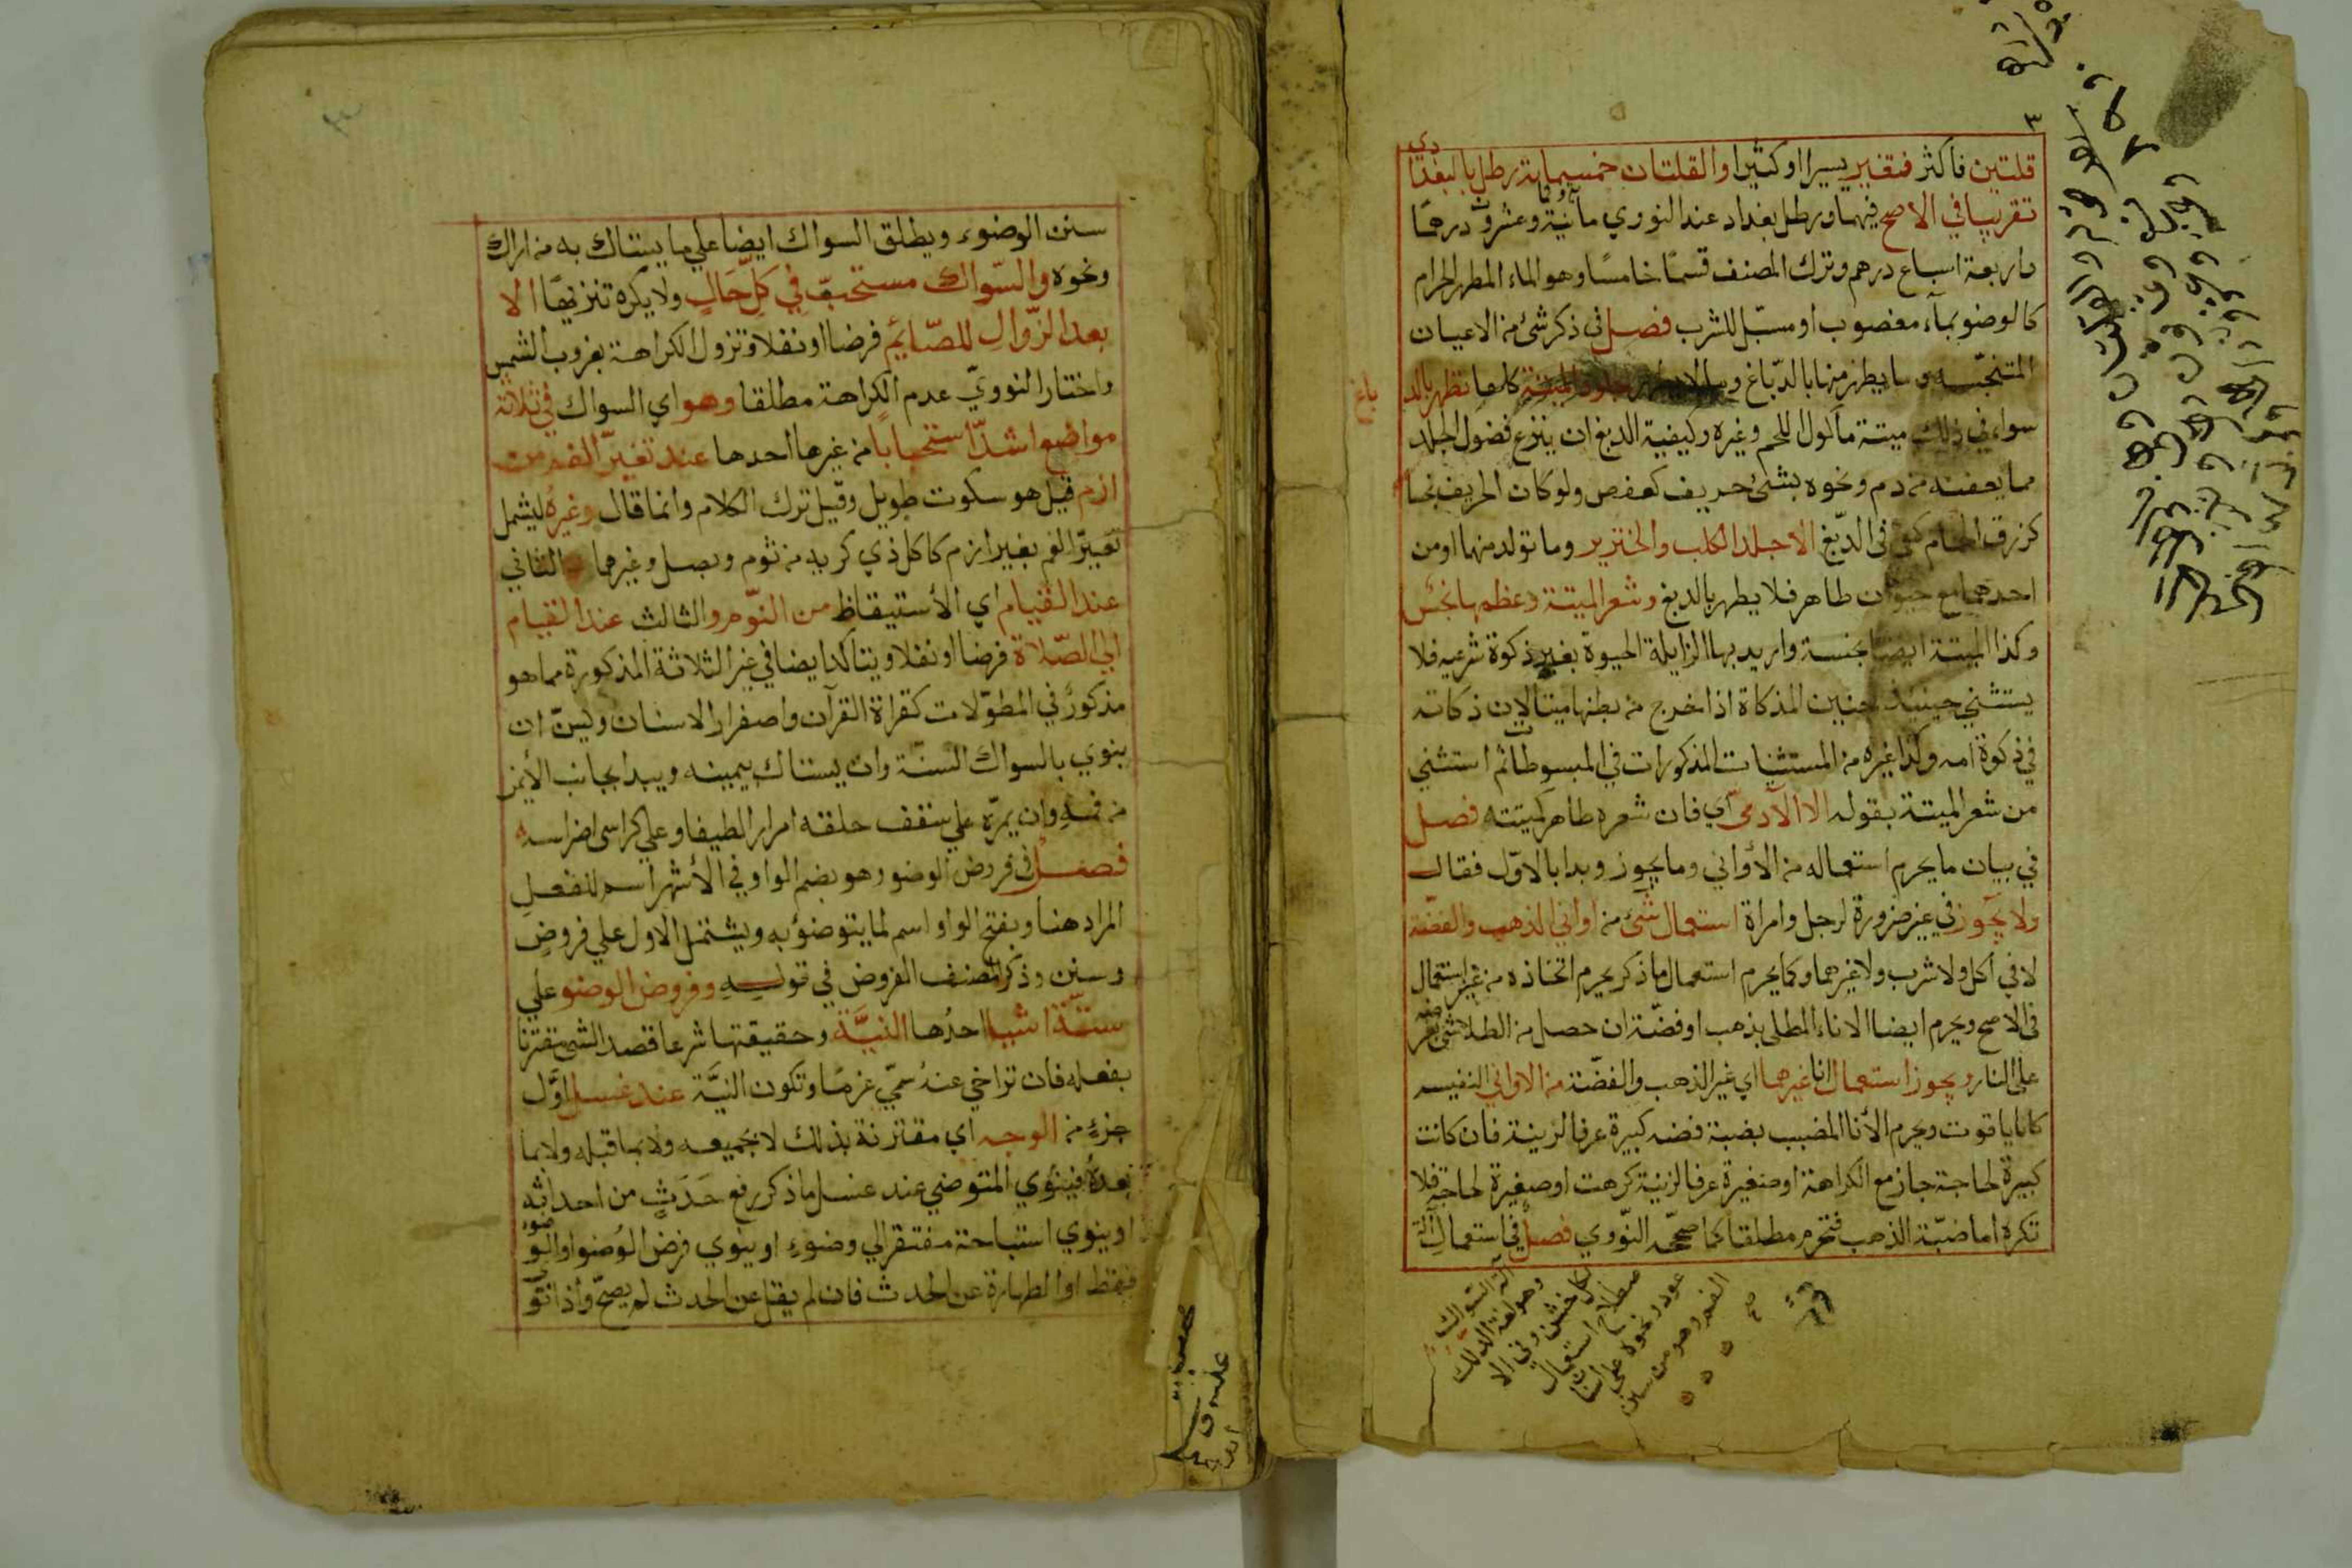 ٣
قلتين فاكثر فتغير يسيرا او كثيرا والقلتان خمسماية رطل بالبغدا
دي
تقريبا في الاصح فيهما ورطل بغداد عند النووي مائة وثمانية وعشرون درهما
واربعة اسباع درهم وترك المصنف قسمًا خامسًا وهو الماء المطهر الحرام
كالوضو بمآء مغصوب او مسبّل للشرب فصل في ذكر شئ من الاعيان
المتنجّسه وما يطهر منها بالدّباغ وما لا يطهر وجلود الميتة كلها تطهر بالد
باغ
سواء في ذلك ميتة مأكول اللحم وغيره وكيفية الدبغ ان ينزع فضول الجلد
مما يعفنه من دم ونحوه بشئ حريف كعفص ولو كان الحريف نجسا
كزرق الحمام كفى في الدّبغ الا جلد الكلب والخنزير وما تولد منهما او من
احدهما مع حيوان طاهر فلا يطهر بالدبغ وشعر الميتة وعظمها نجس
وكذا الميتة ايضا نجسة واريد بها الزايلة الحيوة بغير ذكوة شرعيه فلا
يستثني حينيذ جنين المذكاة اذا خرج من بطنها ميتا لان ذكاته
في ذكوة امه وكذا غيره من المستثنيات المذكورات في المبسوطات ثم استثني
من شعر الميتة بقوله الا الآدمى اي فان شعره طاهر كميتته فصل
في بيان ما يحرم استعماله من الأواني وما يجوز وبدا بالاوّل فقال
ولا يجوز في غير ضرورة لرجل وامراة استعمال شئ من اواني الذهب والفضّة
لا في اكل ولا شرب ولا غيرهما وكما يحرم استعمال ما ذكر يحرم اتخاذه من غير استعمال
في الاصح ويحرم ايضا الاناء المطلى بذهب او فضّة ان حصل من الطلا شئ بعرضه
على النار ويجوز استعمال انا غيرهما اي غير الذهب والفضّة من الاواني النفيسه
كانا ياقوت ويحرم الأنا المضبب بضبة فضه كبيرة عرفا لزينة فان كانت
كبيرة لحاجة جاز مع الكراهة او صغيرة عرفا لزينة كرهت او صغيرة لحاجة فلا
تكره اما ضبّة الذهب فتحرم مطلقا كما صححه النّووي فصل في استعمال آلة
آلة السّواك
وهو لغة الدلك
بكل خشن وفي الا
صطلاح استعمال
عود ونحوه على اسنان
الفم وهو من سنن
سنن الوضوء ويطلق السواك ايضا علي ما يستاك به من اراك
ونحوه والسّواك مستحبّ في كلّ حَالٍ ولا يكره تنزيهًا الا
بعد الزّوالِ للصّايم فرضا او نفلا وتزول الكراهة بغروب الشمس
واختار النوويّ عدم الكراهة مطلقا وهو اي السواك في ثلاثة
مواضع اشدّ استحبابا من غيرها احدها عند تغيّر الفم من
ازم قيل هو سكوت طويل وقيل ترك الكلام وانما قال وغيره ليشمل
تغيّر الفم بغير ازم كاكل ذي كريه من ثوم وبصل وغيرهما والثاني
عند القيام اي الأستيقاظ من النّوم والثالث عند القيام
الي الصّلاة فرضا او نفلا ويتاكد ايضا في غير الثلاثة المذكورة مما هو
مذكورٌ في المطوّلات كقراة القرآن واصفرار الاسنان ويسنّ ان
ينوي بالسواك السنّة وان يستاك بيمينه ويبدا بجانب الأيمن
من فمهِ وان يمرّه علي سقف حلقه امرارا لطيفا وعلي كراسي اضراسه
فصل في فروض الوضو وهو بضم الواو في الأشهر اسم للفعلِ
المراد هنا وبفتح الواو اسم لما يتوضؤ به ويشتمل الاول علي فروضٍ
وسنن وذكر المصنف الفروض في قوله وفروض الوضو علي
ستّة اشيا احدُها النيَّة وحقيقتها شرعا قصد الشئ مقترنا
بفعله فان تراخي عنهُ سمّي عزمًا وتكون النيَّة عند غسل اوَّل
جزءٍ من الوجه اي مقترنة بذلك لا بجميعه ولا بما قبله ولا بما
بعدهُ فينوي المتوضي عند غسل ما ذكر رفع حَدَثٍ من احداثه
او ينوي استباحة مفتقر الي وضوءٍ او ينوي فرض الوُضوا والوضوء
فقط او الطهارة عن الحدث فان لم يقل عن الحدث لم يصحّ واذا نوي